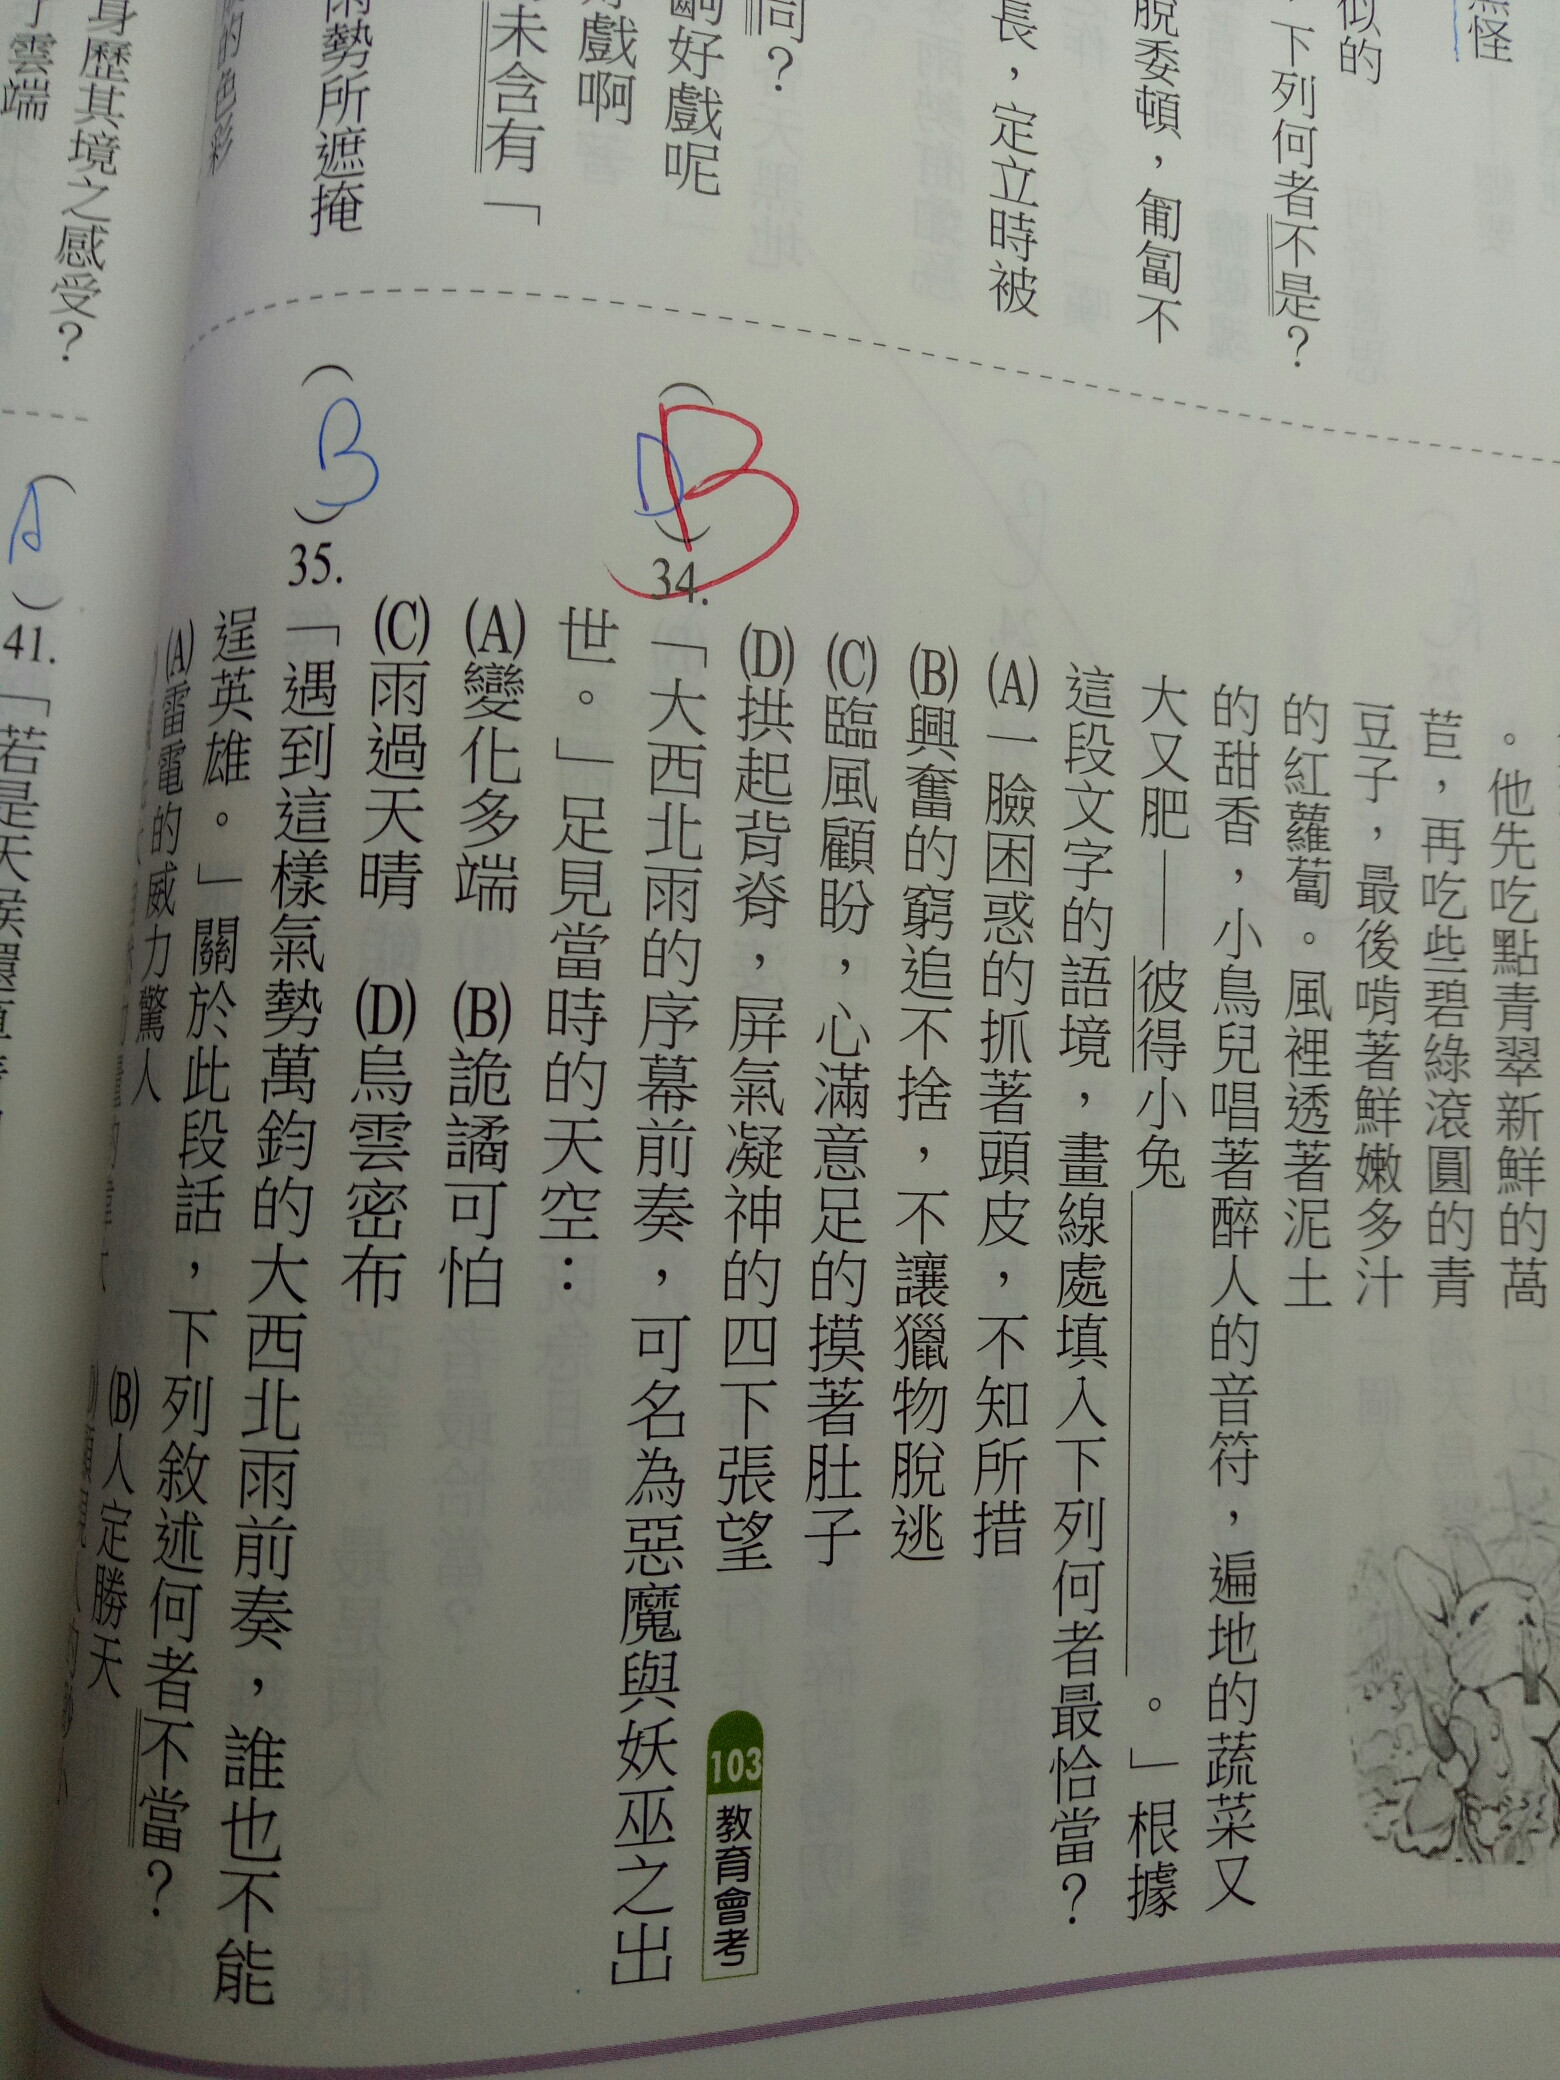 怪
似的
，下列何者不是？
脫委頓，匍匐不
長，定立時被
同？
齣好戲呢
好戲啊
未含有「
雨勢所遮掩
的色彩
。他先吃點青翠新鮮的萵
苣，再吃些碧綠滾圓的青
豆子，最後啃著鮮嫩多汁
的紅蘿蔔。風裡透著泥土
的甜香，小鳥兒唱著醉人的音符，遍地的蔬菜又
大又肥——彼得小兔　　　　。」根據
這段文字的語境，畫線處填入下列何者最恰當？
(A)一臉困惑的抓著頭皮，不知所措
(B)興奮的窮追不捨，不讓獵物脫逃
(C)臨風顧盼，心滿意足的摸著肚子
(D)拱起背脊，屏氣凝神的四下張望　103教育會考
(D B)34.「大西北雨的序幕前奏，可名為惡魔與妖巫之出
世。」足見當時的天空：
(A)變化多端　(B)詭譎可怕
(C)雨過天晴　(D)烏雲密布
(B)35.「遇到這樣氣勢萬鈞的大西北雨前奏，誰也不能
逞英雄。」關於此段話，下列敘述何者不當？
(A)雷電的威力驚人　(B)人定勝天
身歷其境之感受？
雲端
(A)41.「若是天候還